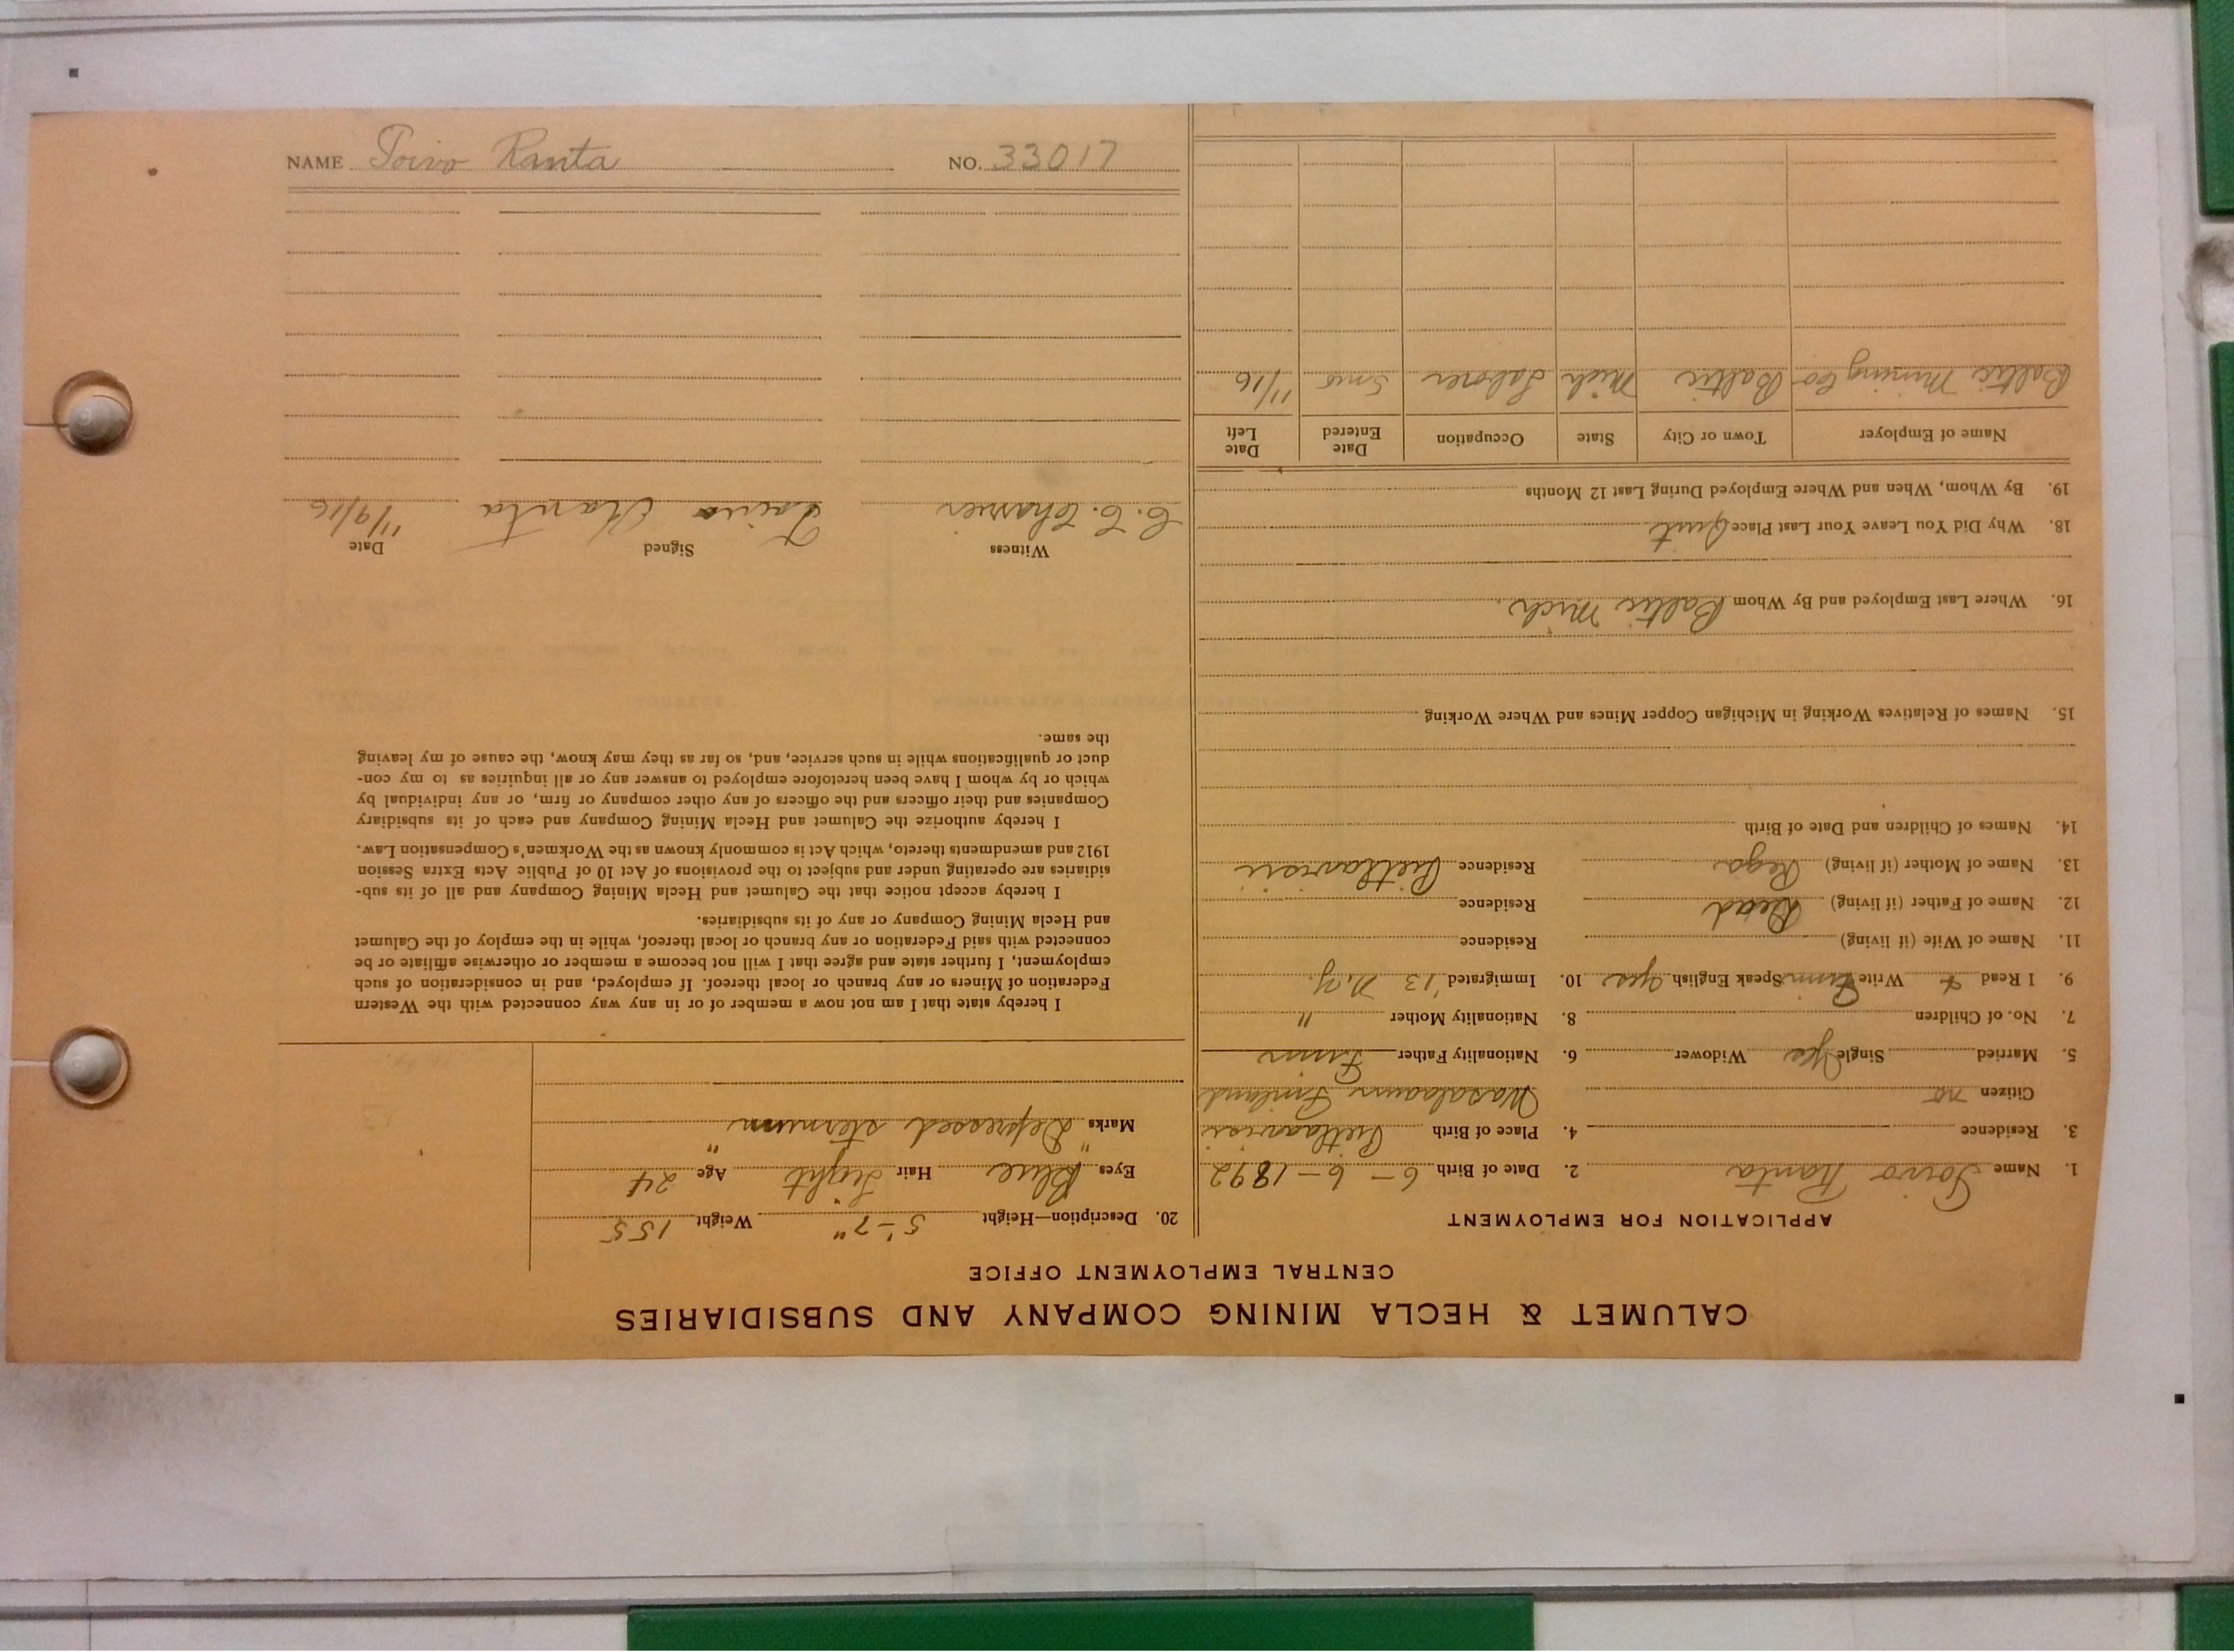 CALUMET & HECLA MINING COMPANY AND SUBSIDIARIES
CENTRAL EMPLOYMENT OFFICE
APPLICATION FOR EMPLOYMENT
1. Name Toivo Ranta 2. Date of Birth 6-6-1892
3. Residence 4. Place of Birth
Citizen no Finland
5. Married Single Yes Widower 6. Nationality Father Finn
7. No. of Children 8. Nationality Mother "
9. I Read & Write Finn Speak English yes 10. Immigrated '13 N.Y.
11. Name of Wife (if living) Residence
12. Name of Father (if living) Dead Residence
13. Name of Mother (if living) Residence
14. Names of Children and Date of Birth
15. Names of Relatives Working in Michigan Copper Mines and Where Working
16. Where Last Employed and By Whom Baltic Mich.
18. Why Did You Leave Your Last Place Quit
19. By Whom, When and Where Employed During Last 12 Months
Name of Employer Town or City State Occupation Date Entered Date Left
Baltic Mining Co Baltic Mich Laborer 5 mo 11/16
20. Description—Height 5'-7" Weight 155
Eyes Blue Hair Light Age 24
Marks "Depressed sternum"
I hereby state that I am not now a member of or in any way connected with the Western
Federation of Miners or any branch or local thereof. If employed, and in consideration of such
employment, I further state and agree that I will not become a member or otherwise affiliate or be
connected with said Federation or any branch or local thereof, while in the employ of the Calumet
and Hecla Mining Company or any of its subsidiaries.
I hereby accept notice that the Calumet and Hecla Mining Company and all of its sub-
sidiaries are operating under and subject to the provisions of Act 10 of Public Acts Extra Session
1912 and amendments thereto, which Act is commonly known as the Workmen's Compensation Law.
I hereby authorize the Calumet and Hecla Mining Company and each of its subsidiary
Companies and their officers and the officers of any other company or firm, or any individual by
which or by whom I have been heretofore employed to answer any or all inquiries as to my con-
duct or qualifications while in such service, and, so far as they may know, the cause of my leaving
the same.
Witness Signed Date
C. C. Toivo Ranta 11/9/16
NAME Toivo Ranta NO. 33017